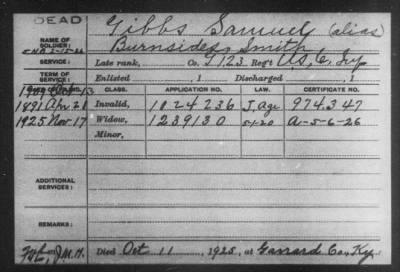 DEAD
NAME OF SOLDIER: Gibbs Samuel (alias)
Burnsides, Smith
SERVICE: Late rank, Co. I, 123 Reg't U.S.C. Inf
TERM OF SERVICE: Enlisted , 1 Discharged , 1
DATE OF FILING. CLASS. APPLICATION NO. LAW. CERTIFICATE NO.
1891 Apr 21 Invalid, 1024236 J. Age 974.347
1925 Nov 17 Widow, 1239130 5-1-20 A-5-6-26
Minor,
ADDITIONAL SERVICES:
REMARKS:
J.M.H. Died Oct 11, 1925, at Garrard Co., Ky.